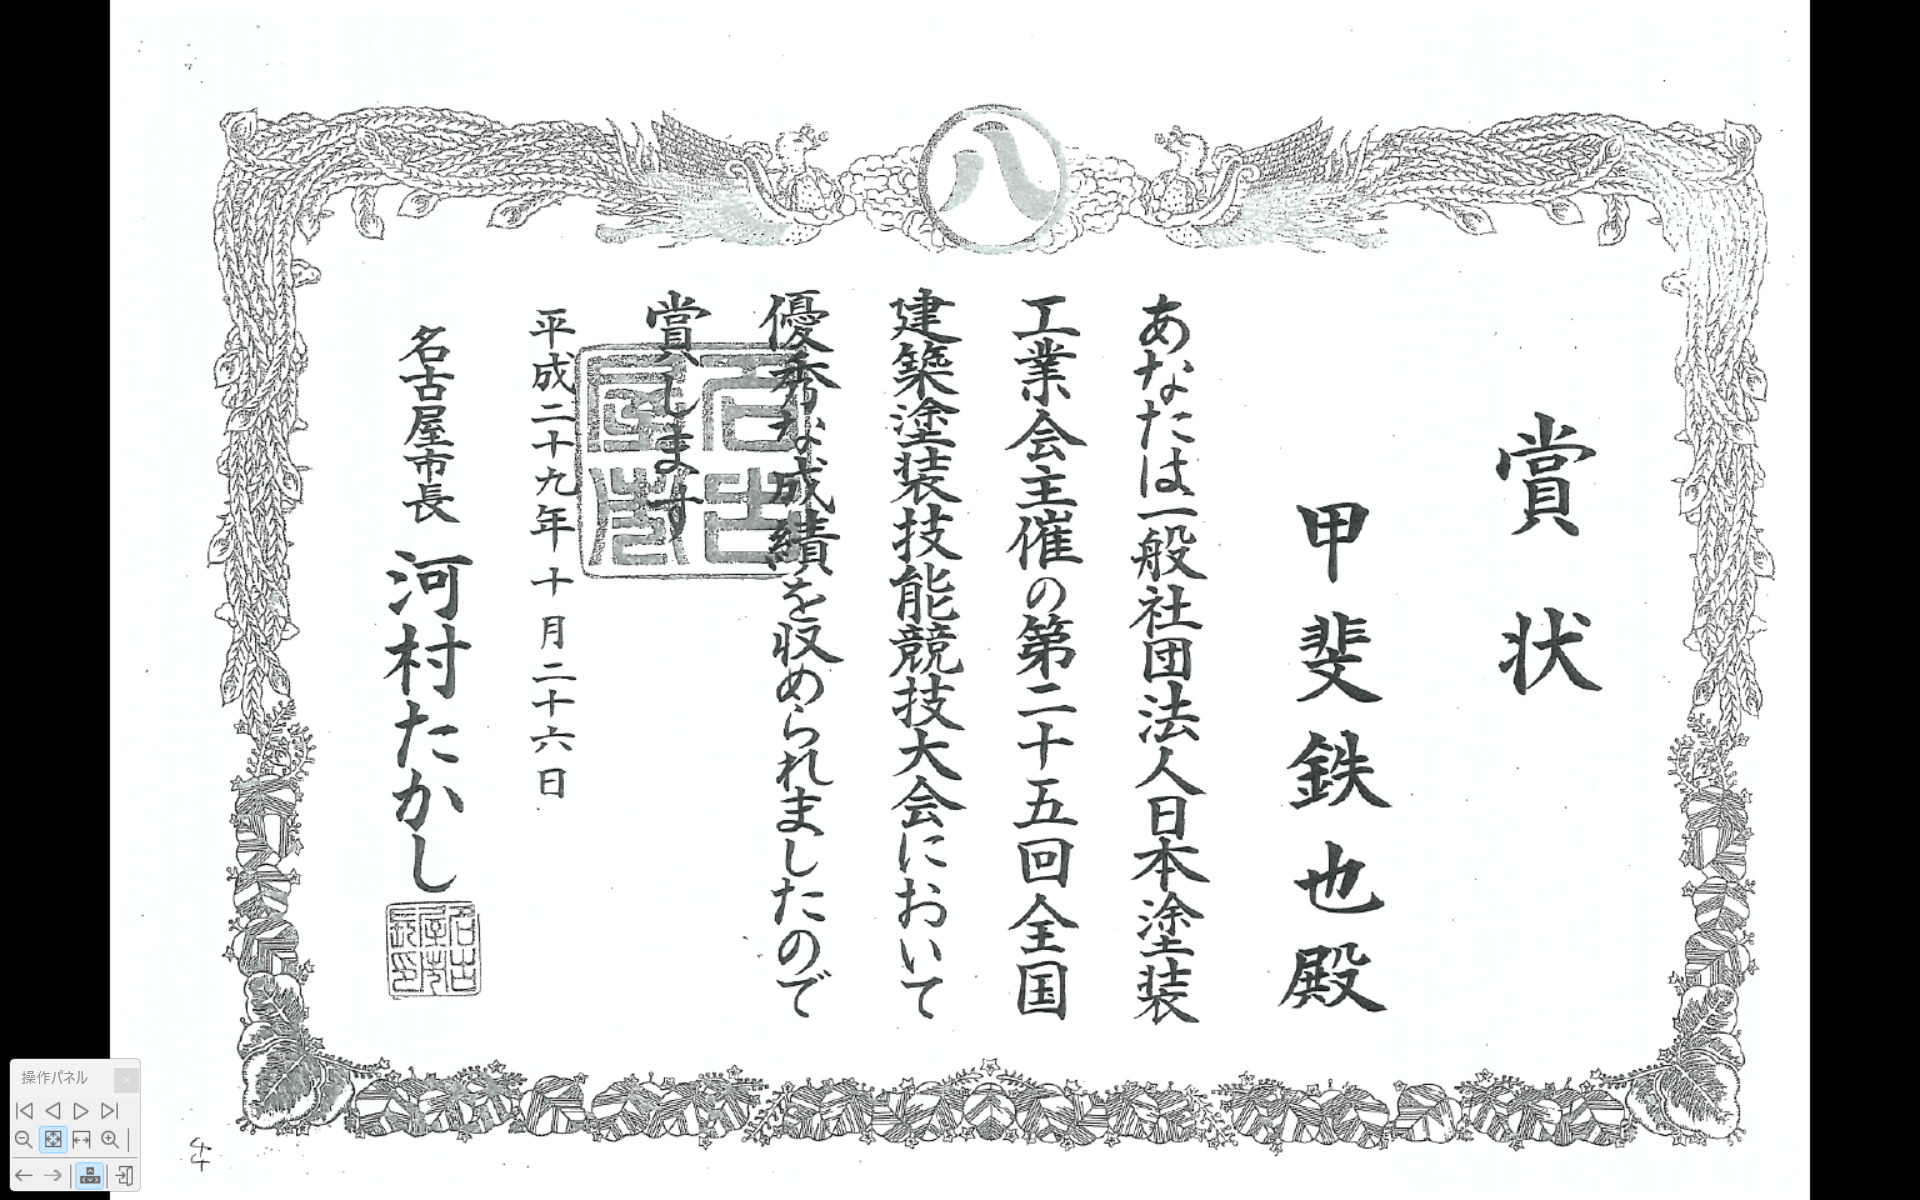 八
賞状
甲斐鉄也殿
あなたは一般社団法人日本塗装
工業会主催の第二十五回全国
建築塗装技能競技大会において
優秀な成績を収められましたので
賞します
平成二十九年十月二十六日
名古屋市長 河村たかし
名古屋市
名古屋市長印
操作パネル